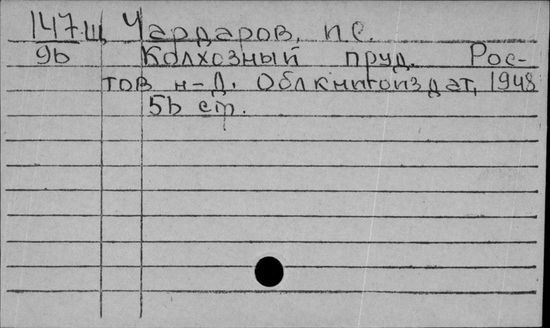 147.Щ Чардаров, П.С.
96 Колхозный пруд. Рос-
тов н-Д. Облкнигоиздат, 1948
56 стр.